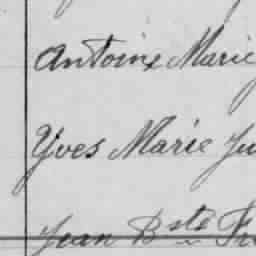 Antoine Marie
Yves Marie Ju
Jean Bste Fr